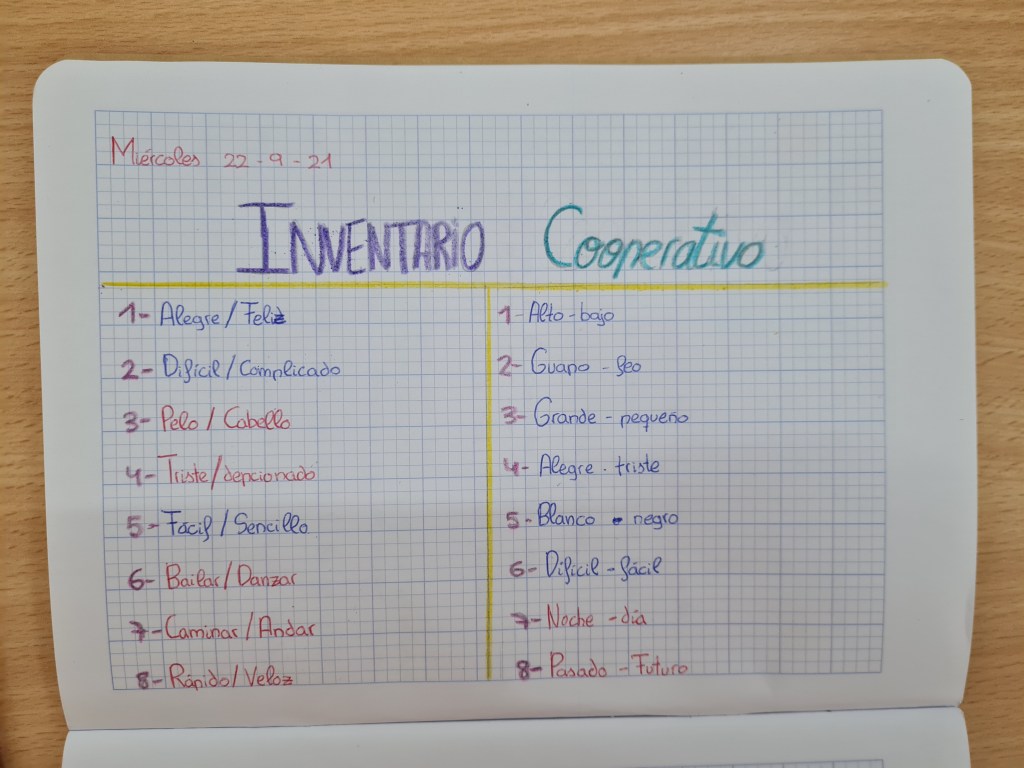 Miércoles 22-9-21
INVENTARIO Cooperativo
1- Alegre/Feliz
2- Dificil/Complicado
3- Pelo/Cabello
4- Triste/depcionado
5- Facil/Sencillo
6- Bailar/Danzar
7- Caminar/Andar
8- Rápido/Veloz
1- Alto-bajo
2- Guapo - feo
3- Grande - pequeño
4- Alegre - triste
5- Blanco - negro
6- Dificil - fácil
7- Noche - día
8- Pasado - Futuro